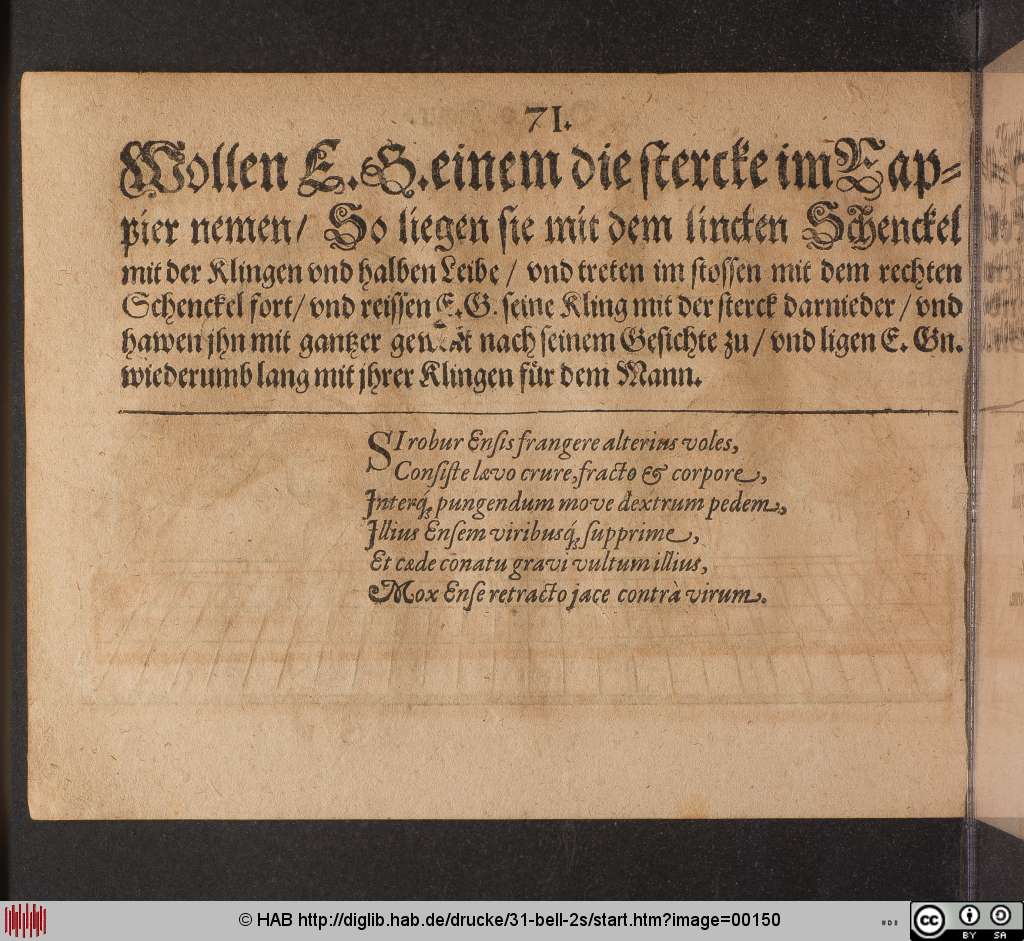 71.
Wollen E. G. einem die stercke im Rap-
pier nemen/ So liegen sie mit dem lincken Schenckel
mit der Klingen vnd halben Leibe / vnd treten im stossen mit dem rechten
Schenckel fort/ vnd reissen E. G. seine Kling mit der sterck darnieder / vnd
hawen jhn mit gantzer nach seinem Gesichte zu / vnd ligen E. Gn.
wiederumb lang mit jhrer Klingen für dem Mann.
SI robur Ensis frangere alterius voles,
Consiste lævo crure, fracto & corpore,
Interq́; pungendum move dextrum pedem,
Illius Ensem viribusq́; supprime,
Et cæde conatu gravi vultum illius,
Mox Ense retracto jace contrà virum.
© HAB http://diglib.hab.de/drucke/31-bell-2s/start.htm?image=00150
cc BY SA